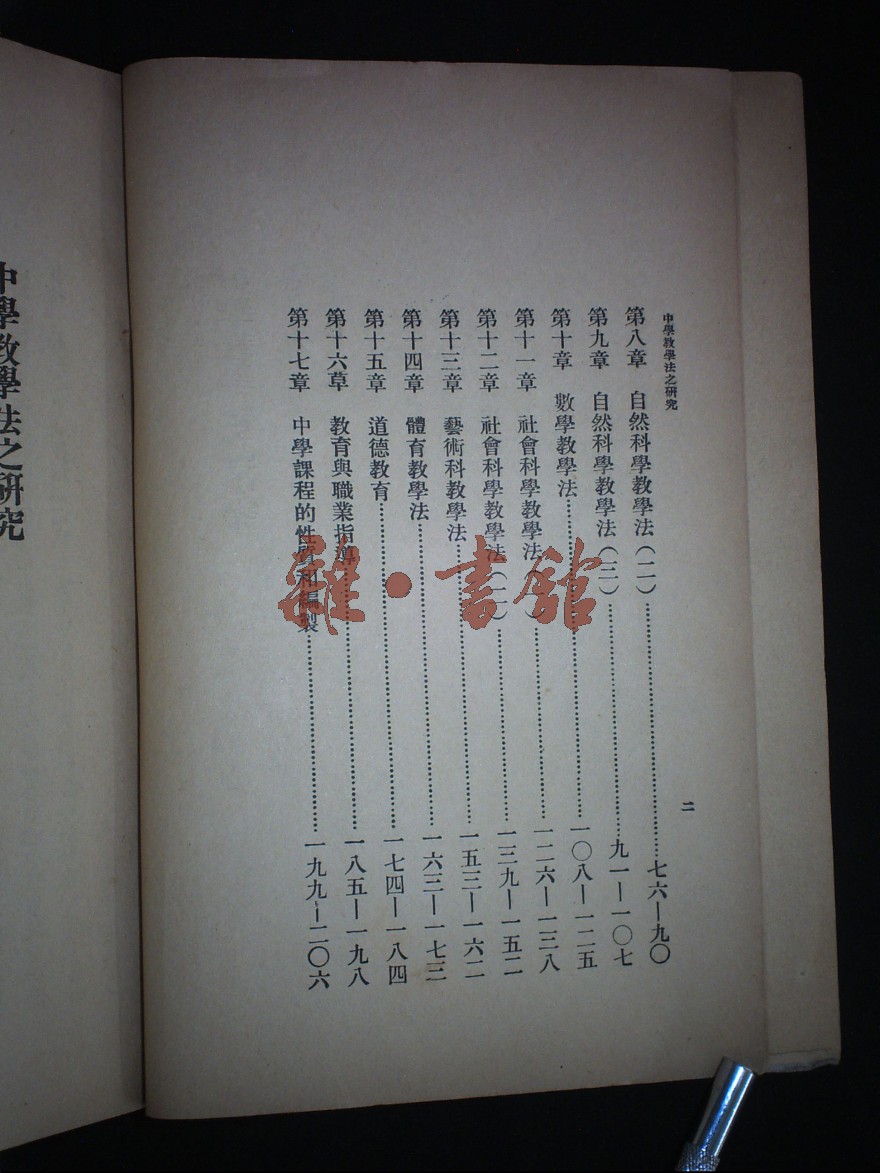 中學教學法之研究
第八章 自然科學教學法(二)……七六—九〇
第九章 自然科學教學法(三)……九一—一〇七
第十章 數學教學法……一〇八—一二五
第十一章 社會科學教學法( )……一二六—一三八
第十二章 社會科學教學法(二)……一三九—一五二
第十三章 藝術科教學法……一五三—一六二
第十四章 體育教學法……一六三—一七三
第十五章 道德教育……一七四—一八四
第十六草 教育與職業指導……一八五—一九八
第十七章 中學課程的性質和編製……一九九—二〇六
二
中學教學法之研究
雜·書館